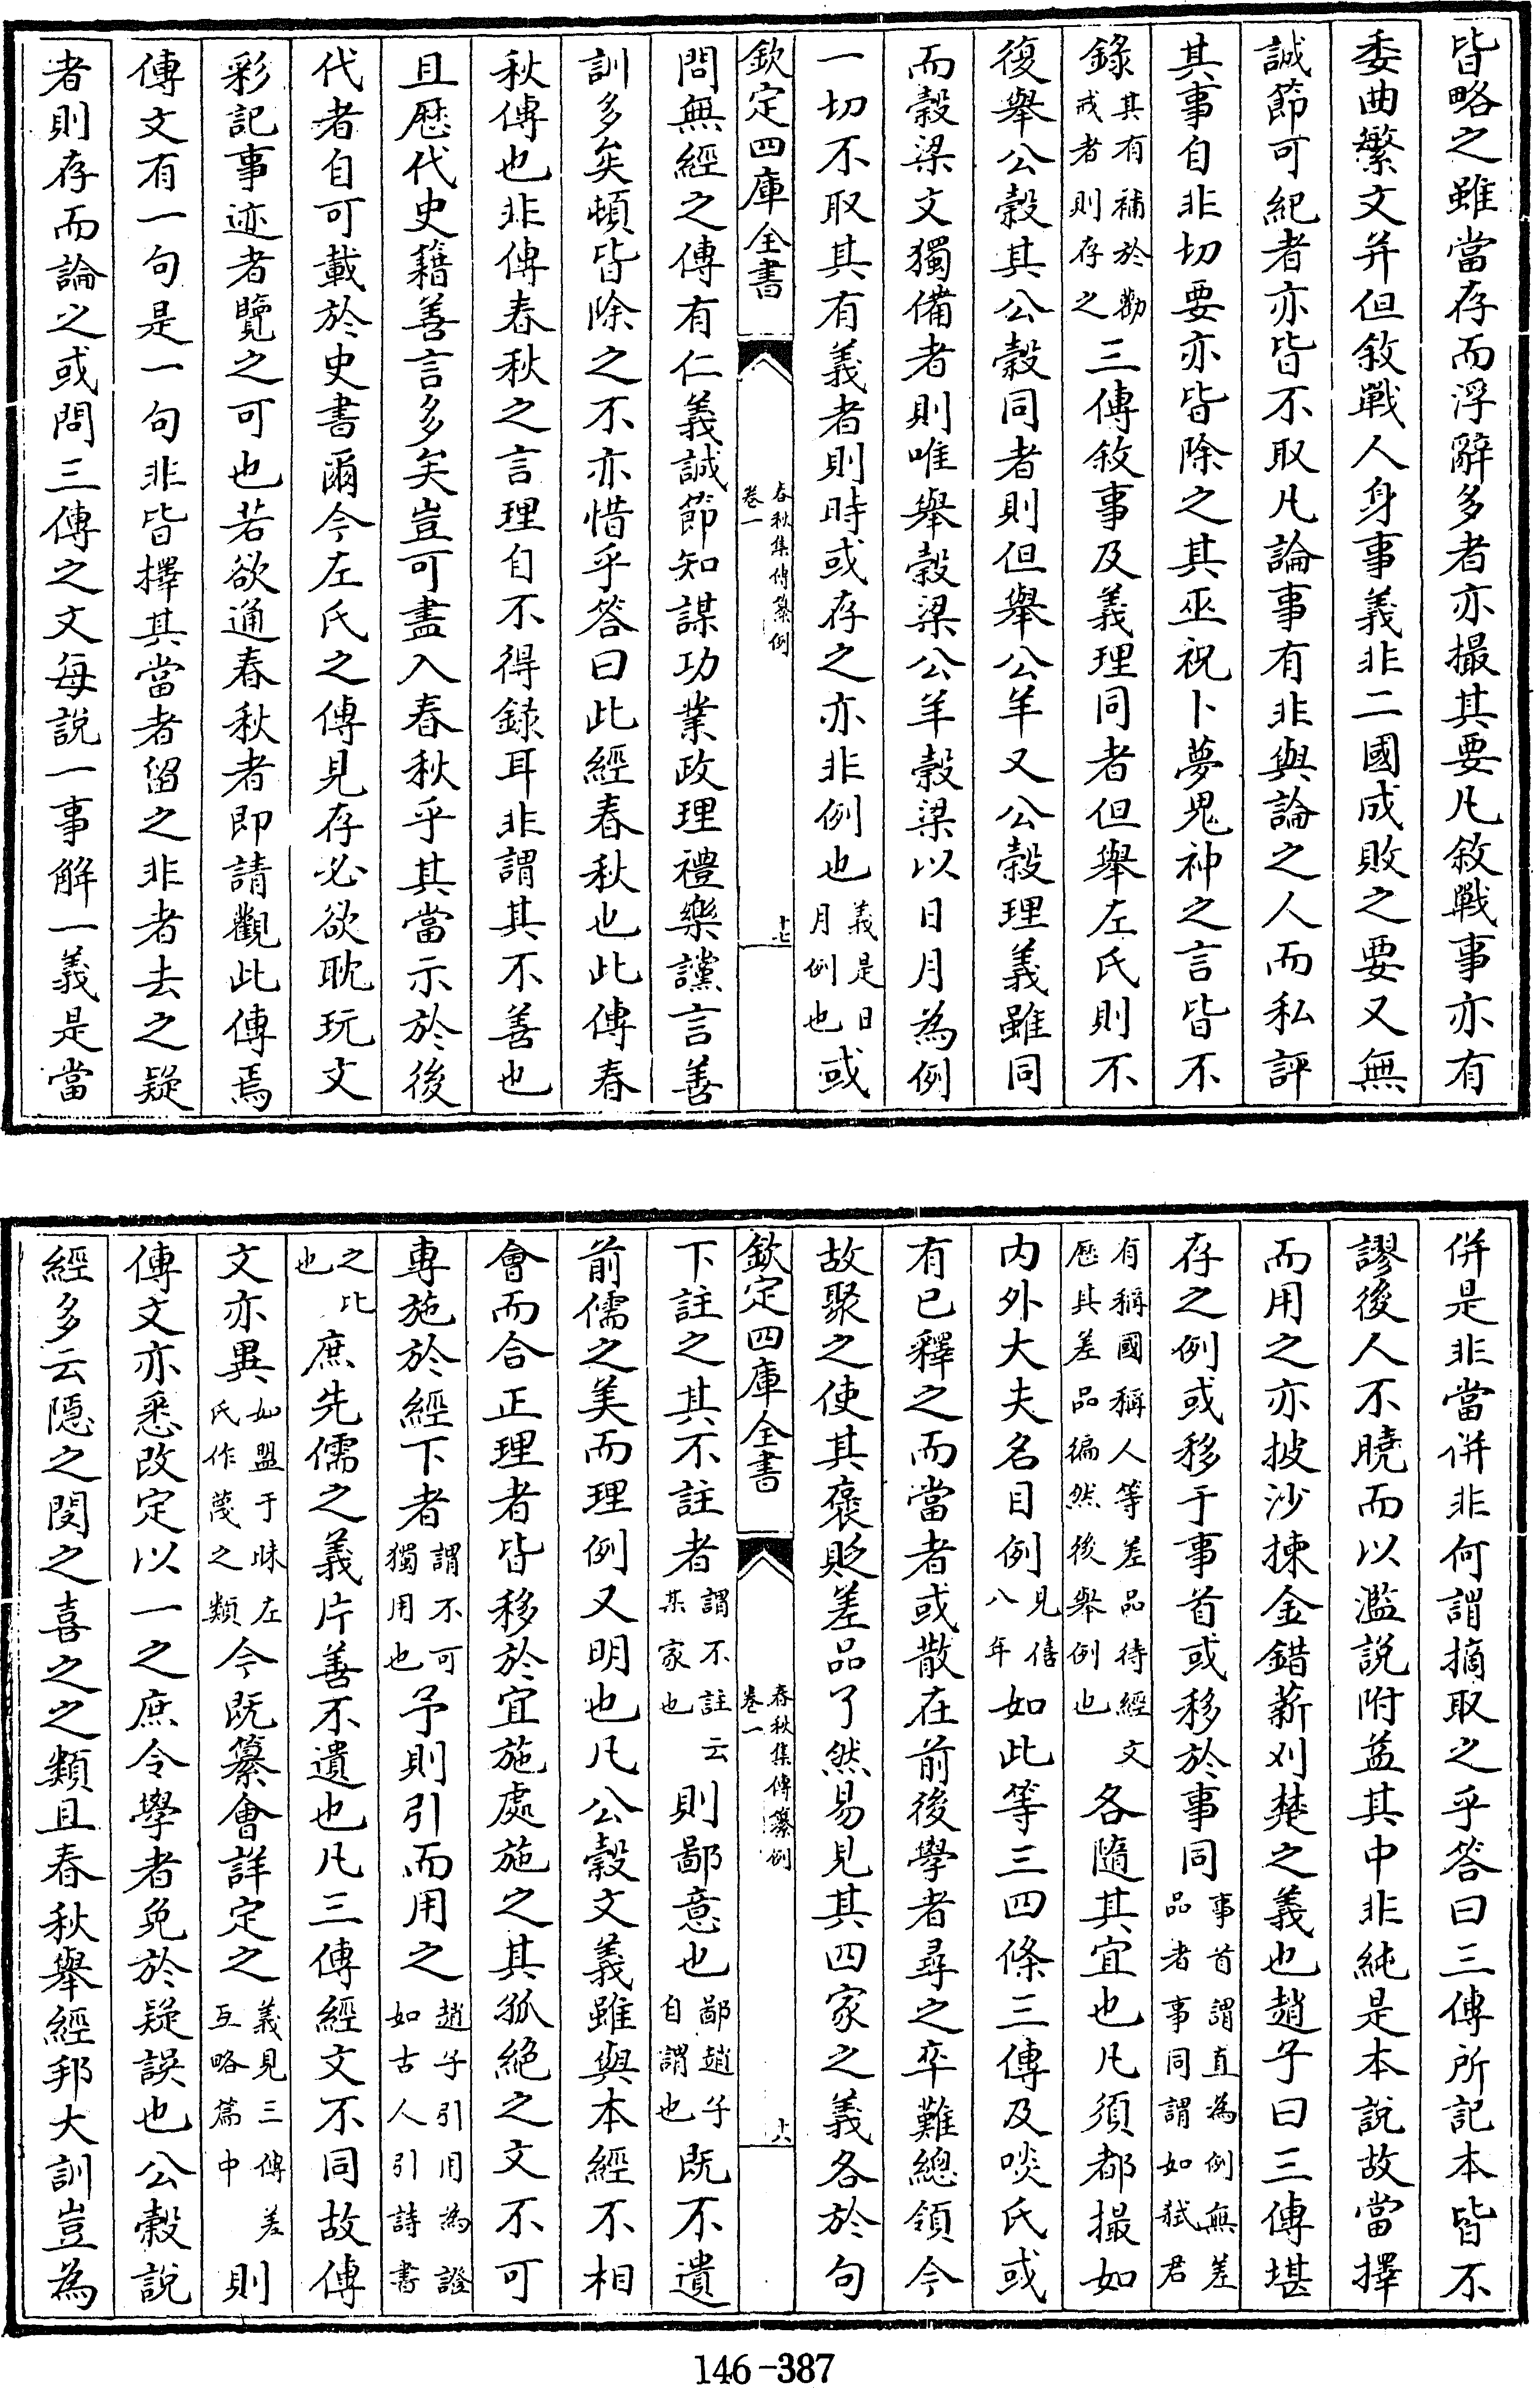 皆略之雖當存而浮辭多者亦撮其要凡敘戰事亦有
委曲繁文并但敘戰人身事義非二國成敗之要又無
誠節可紀者亦皆不取凡論事有非與論之人而私評
其事自非切要亦皆除之其巫祝卜夢鬼神之言皆不
錄其有補於勸戒者則存之三傳敘事及義理同者但舉左氏則不
復舉公穀其公穀同者則但舉公羊又公穀理義雖同
而穀梁文獨備者則唯舉穀梁公羊穀梁以日月為例
一切不取其有義者則時或存之亦非例也義是日月例也或
欽定四庫全書
春秋集傳纂例
卷一
十七
問無經之傳有仁義誠節知謀功業政理禮樂讜言善
訓多矣頓皆除之不亦惜乎答曰此經春秋也此傳春
秋傳也非傳春秋之言理自不得錄耳非謂其不善也
且歴代史籍善言多矣豈可盡入春秋乎其當示於後
代者自可載於史書爾今左氏之傳見存必欲耽玩文
彩記事迹者覽之可也若欲通春秋者即請觀此傳焉
傳文有一句是一句非皆擇其當者留之非者去之疑
者則存而論之或問三傳之文每説一事解一義是當
併是非當併非何謂摘取之乎答曰三傳所記本皆不
謬後人不曉而以濫說附益其中非純是本說故當擇
而用之亦披沙揀金錯薪刈楚之義也趙子曰三傳堪
存之例或移于事首或移於事同事首謂直為例無差品者事同謂如弑君
有稱國稱人等差品待經文歴其差品徧然後舉例也各隨其宜也凡須都撮如
内外大夫名目例見僖八年如此等三四條三傳及啖氏或
有已釋之而當者或散在前後學者尋之卒難總領今
故聚之使其褒貶差品了然易見其四家之義各於句
欽定四庫全書
春秋集傳纂例
卷一
十八
下註之其不註者謂不註云某家也則鄙意也鄙趙子自謂也既不遺
前儒之美而理例又明也凡公穀文義雖與本經不相
會而合正理者皆移於宜施處施之其孤絶之文不可
專施於經下者謂不可獨用也予則引而用之趙子引用為證如古人引詩書
之比也庶先儒之義片善不遺也凡三傳經文不同故傳
文亦異如盟于昧左氏作蔑之類今既纂會詳定之義見三傳差互略篇中則
傳文亦悉改定以一之庶令學者免於疑誤也公穀說
經多云隱之閔之喜之之類且春秋舉經邦大訓豈為
146-387